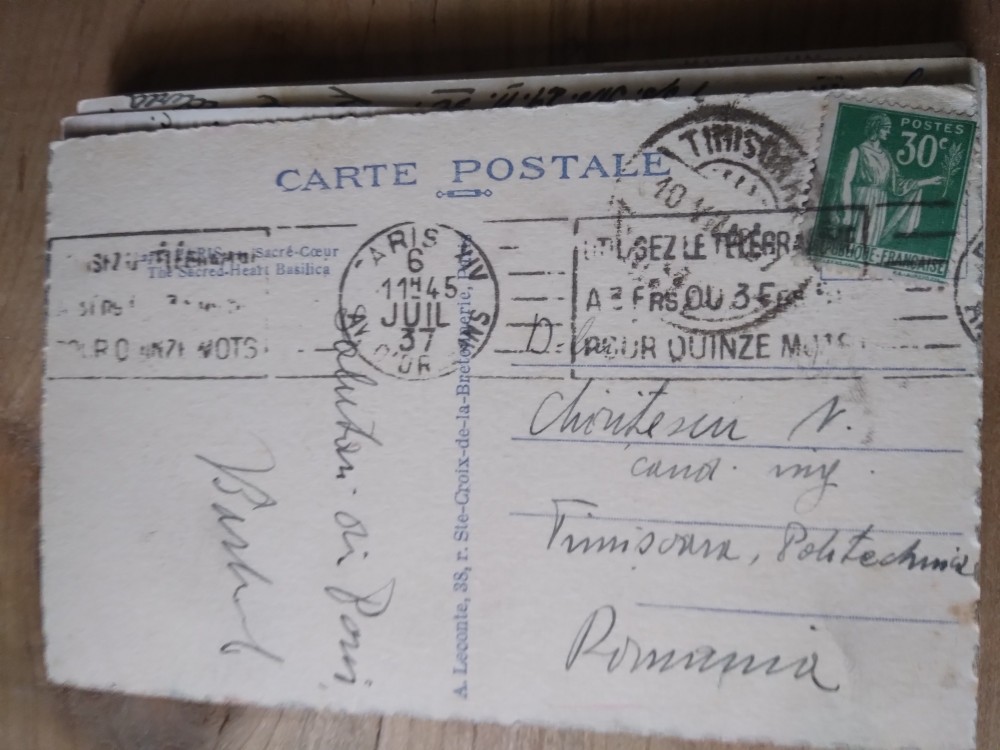 CARTE POSTALE
PARIS Sacré-Cœur
The Sacred-Heart Basilica
TIMISOARA
10
POSTES
30c
FRANÇAISE
PARIS VII
6
11H45
JUIL
37
AV
UTILISEZ LE TELEGRAMME
OU 3 F
POUR QUINZE MOTS
POUR QUINZE MOTS
A. Leconte, 38, r. Ste-Croix-de-la-Bretonnerie, Paris
Salutari din Paris
D-lui
Chiritescu N.
cand. ing.
Timisoara, Politechnica
Romania